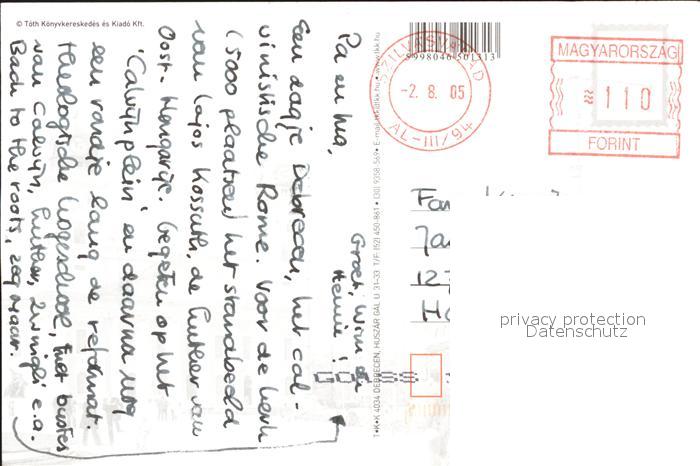 © Tóth Könyvkereskedés és Kiadó Kft.
Pa en Ma,
Een dagje Debrecen, het cal-
vinistische Rome. Voor de kerk
(5000 plaatsen) het standbeeld
van Lajos Kossuth, de Luther van
Oost-Hongarije. Gegeten op het
'Calvijnplein' en daarna nog
een rondje langs de reformat.
theologische hogeschool, met bustes
van Calvijn, Luther, Zwingli e.a.
Back to the roots, zeg maar.
Groet, Wim en
Hennie!
T•K•K 4034 DEBRECEN, HUSZÁR GÁL U. 31-33 T/F: (52) 450-861 • (30) 9358-569 • E-mail:
5998046501313
SZILVÁSVÁRAD
-2. 8. 05
AL-III/94
MAGYARORSZÁG
110
FORINT
Fam
Ja
12
H
privacy protection
Datenschutz